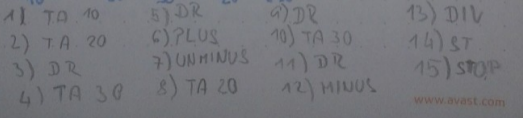 1) TA 10
2) TA 20
3) DR
4) TA 30
5) DR
6) PLUS
7) UNMINUS
8) TA 20
9) DR
10) TA 30
11) DR
12) MINUS
13) DIV
14) ST
15) STOP
www.avast.com